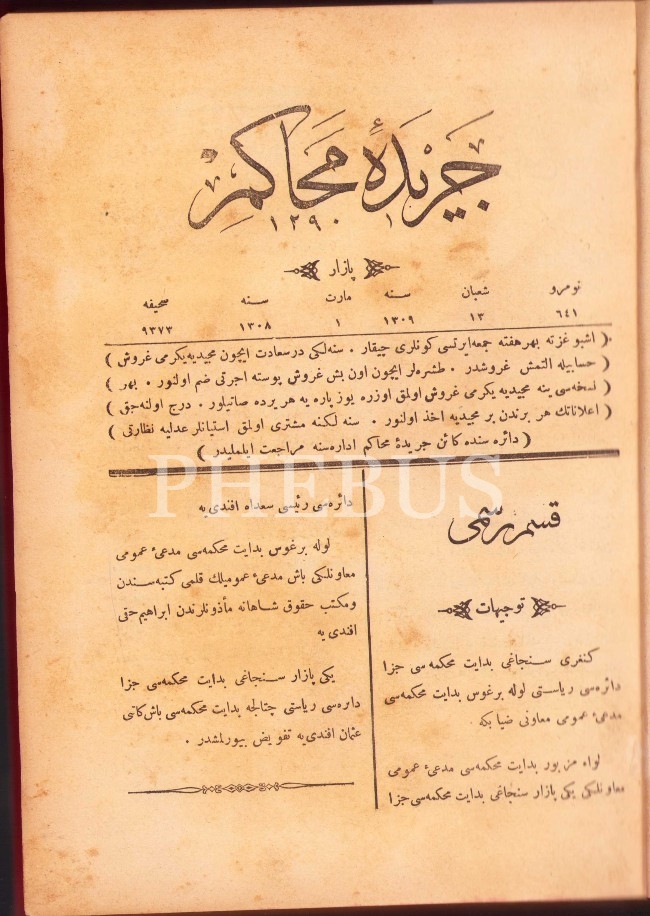 جريدۀ محاكم
١٢٩٠
پازار
نومرو شعبان سنه مارت سنه صحيفه
٦٤١ ١٣ ١٣٠٩ ١ ١٣٠٨ ٩٣٧٣
( اشبو غزته بهر هفته جمعه ايرتسى كونلرى چيقار . سنه لكى درسعادت ايچون مجيديه يكرمى غروش )
( حسابيله التمش غروشدر . طشره لر ايچون اون بش غروش پوسته اجرتى ضم اولنور . بهر )
( نسخه سى ينه مجيديه يكرمى غروش اولمق اوزره يوز پاره يه هر يرده صاتيلور . درج اولنه جق )
( اعلاناتك هر برندن بر مجيديه اخذ اولنور . سنه لكنه مشترى اولمق استيانلر عدليه نظارتى )
( دائره سنده كائن جريدۀ محاكم اداره سنه مراجعت ايلمليدر )
PHEBUS
قسم رسمى
توجيهات
كنغرى سنجاغى بدايت محكمه سى جزا
دائره سى رياستى لوله برغوس بدايت محكمه سى
مدعئ عمومى معاونى ضيا بكه .
لواء مزبور بدايت محكمه سى مدعئ عمومى
معاونلكى يكى پازار سنجاغى بدايت محكمه سى جزا
دائره سى رئيسى سعدالله افندى يه
لوله برغوس بدايت محكمه سى مدعئ عمومى
معاونلكى باش مدعئ عموميلك قلمى كتبه سندن
ومكتب حقوق شاهانه مأذونلرندن ابراهيم حقى
افندى يه
يكى پازار سنجاغى بدايت محكمه سى جزا
دايره سى رياستى چتالجه بدايت محكمه سى باش كاتبى
عثمان افندى يه تفويض بيورلمشدر .